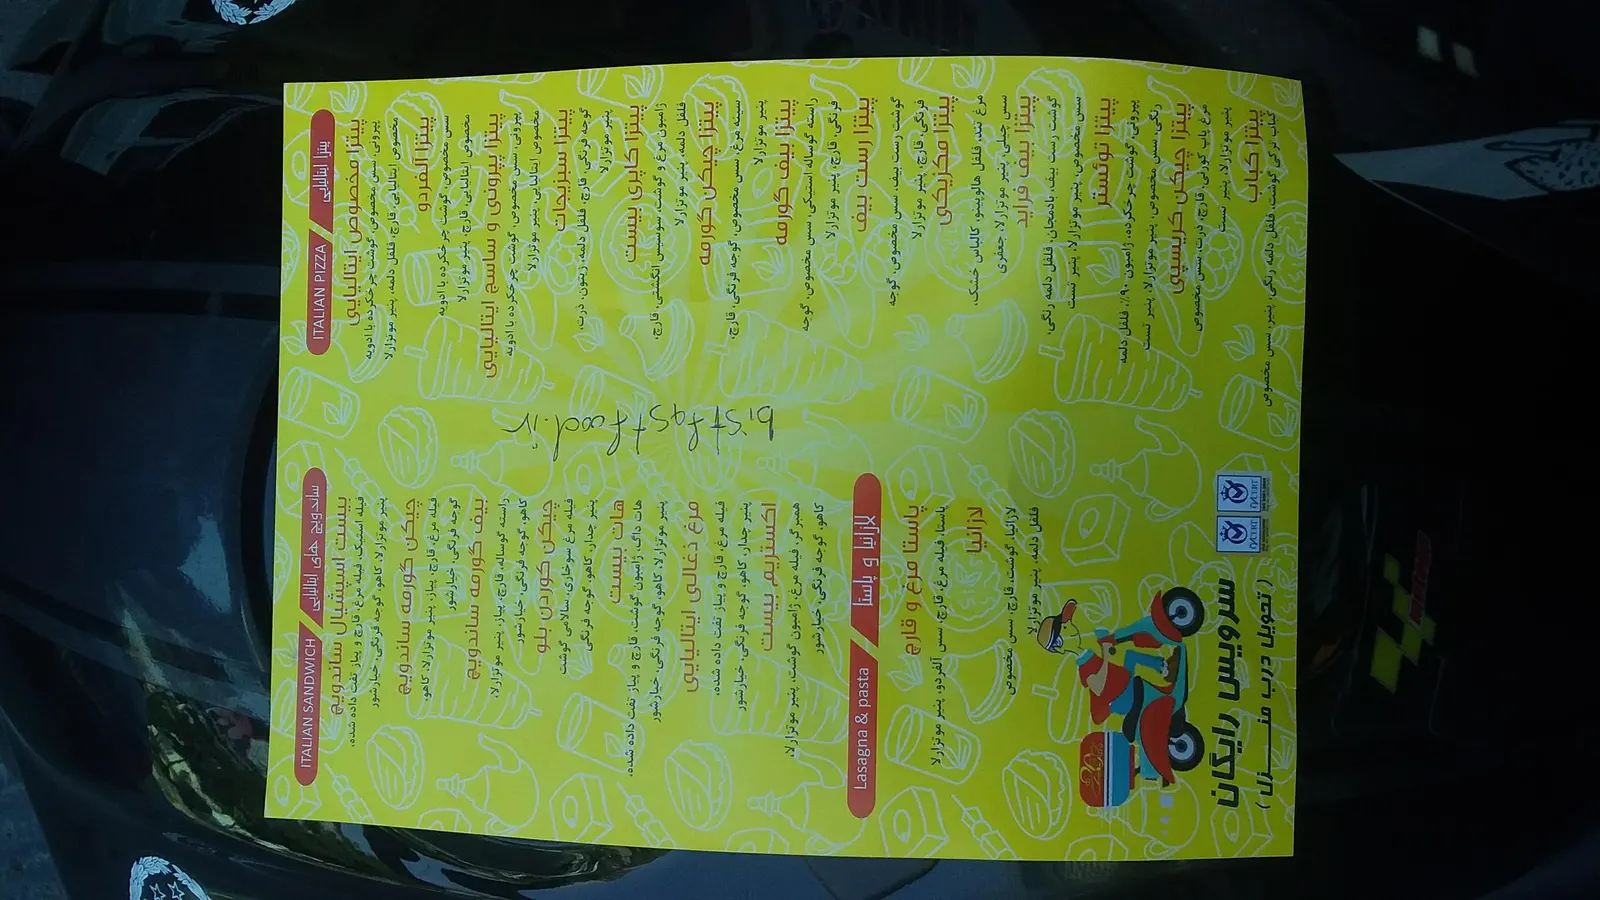 ITALIAN PIZZA پیتزا ایتالیایی
پیتزا مخصوص ایتالیایی
پپرونی، سس مخصوص، گوشت چرخکرده با ادویه
مخصوص ایتالیایی، قارچ، فلفل دلمه، پنیر موتزارلا
پیتزا آلفردو
سس مخصوص، گوشت چرخکرده با ادویه
مخصوص ایتالیایی، قارچ، پنیر موتزارلا
پیتزا پپرونی و ساسج ایتالیایی
پپرونی، سس مخصوص، گوشت چرخکرده با ادویه
مخصوص ایتالیایی، پنیر موتزارلا
پیتزا سبزیجات
گوجه فرنگی، قارچ، فلفل دلمه، زیتون، ذرت،
پنیر موتزارلا
پیتزا کابری بیست
ژامبون مرغ و گوشت، سوسیس انگشتی، قارچ،
فلفل دلمه، پنیر موتزارلا
پیتزا چیکن گورمه
سینه مرغ، سس مخصوص، گوجه فرنگی، قارچ،
پنیر موتزارلا
پیتزا بیف گورمه
راسته گوساله استیکی، سس مخصوص، گوجه
فرنگی، قارچ، پنیر موتزارلا
پیتزا رست بیف
گوشت رست بیف، سس مخصوص، گوجه
فرنگی، قارچ، پنیر موتزارلا
پیتزا مکزیکی
مرغ تند، فلفل هالوپینو، کالباس خشک،
سس چیلی، پنیر موتزارلا، جعفری
پیتزا بیف فراید
گوشت رست بیف، بادمجان، فلفل دلمه رنگی،
سس مخصوص، پنیر موتزارلا، پنیر تست
پیتزا توفستر
پپرونی، گوشت چرخکرده، ژامبون ۹۰٪، فلفل دلمه
رنگی، سس مخصوص، پنیر موتزارلا، پنیر تست
پیتزا چیکن کریسپی
مرغ پاپ کورنی، قارچ، ذرت، سس مخصوص
پنیر موتزارلا، پنیر تست
پیتزا کباب
کباب ترکی گوشت، فلفل دلمه رنگی، پنیر، سس مخصوص
bistfastfood.ir
ITALIAN SANDWICH ساندویچ های ایتالیایی
بیست اسپشیال ساندویچ
فیله استیک، فیله مرغ، قارچ و پیاز تفت داده شده،
پنیر موتزارلا، کاهو، گوجه فرنگی، خیارشور
چیکن گورمه ساندویچ
فیله مرغ، قارچ، پیاز، پنیر موتزارلا، کاهو،
گوجه فرنگی، خیارشور
بیف گورمه ساندویچ
راسته گوساله، قارچ، پیاز، پنیر موتزارلا،
کاهو، گوجه فرنگی، خیارشور
چیکن کوردن بلو
فیله مرغ سوخاری، سلامی گوشت
پنیر چدار، کاهو، گوجه فرنگی
هات بیست
هات داگ، ژامبون گوشت، قارچ و پیاز تفت داده شده،
پنیر موتزارلا، کاهو، گوجه فرنگی، خیارشور
مرغ ذغالی ایتالیایی
فیله مرغ، قارچ و پیاز تفت داده شده،
پنیر چدار، کاهو، گوجه فرنگی، خیارشور
اکستریم بیست
همبرگر، فیله مرغ، ژامبون گوشت، پنیر موتزارلا،
کاهو، گوجه فرنگی، خیارشور
Lasagna & pasta لازانیا و پاستا
پاستا مرغ و قارچ
پاستا، فیله مرغ، قارچ، سس آلفردو، پنیر موتزارلا
لازانیا
لازانیا، گوشت، قارچ، سس مخصوص
فلفل دلمه، پنیر موتزارلا
سرویس رایگان
( تحویل درب منزل )